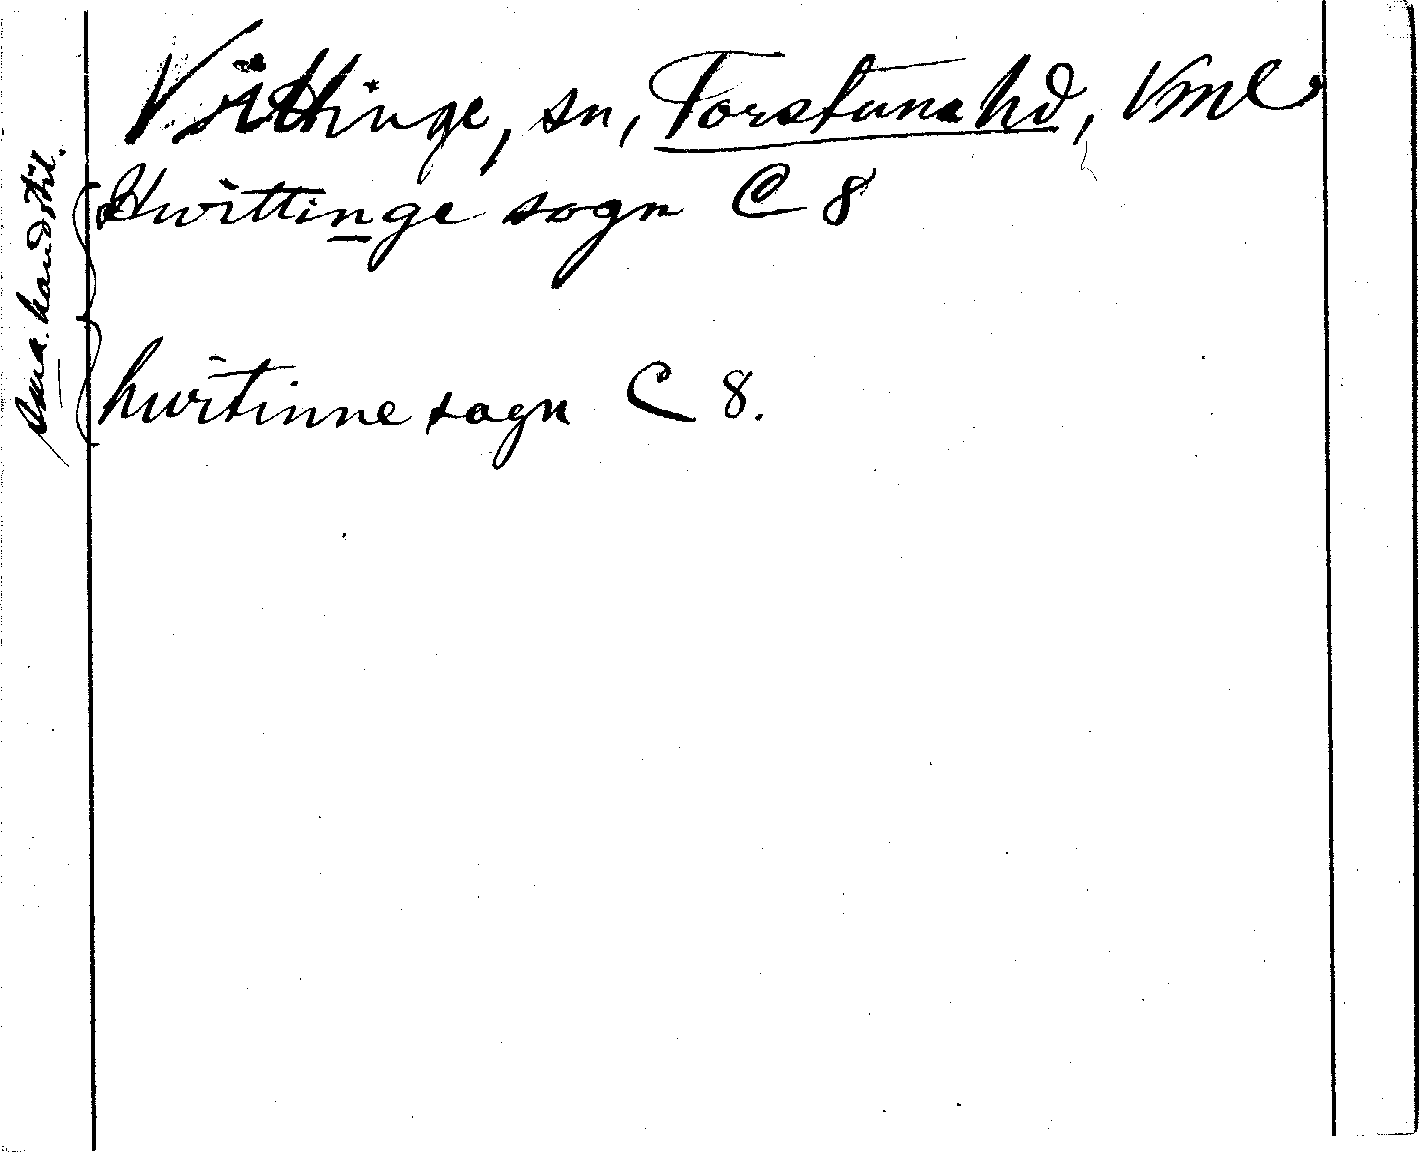 Vittinge, sn, Torstuna hd, Vml
Hwittinge sogn C 8
hwitinne sogn C 8.
sma. handstil.